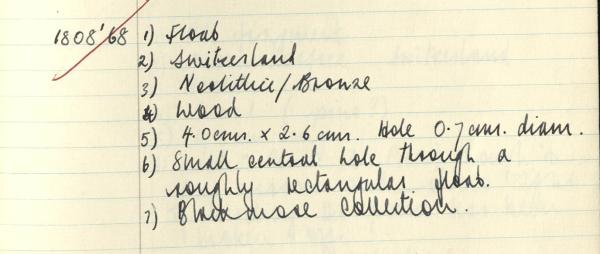 1808'68 1) Float
2) Switzerland
3) Neolithic/Bronze
4) Wood
5) 4.0cms. x 2.6 cms. Hole 0.7cms. diam.
6) Small central hole through a
roughly rectangular float.
7) Blackmore Collection.